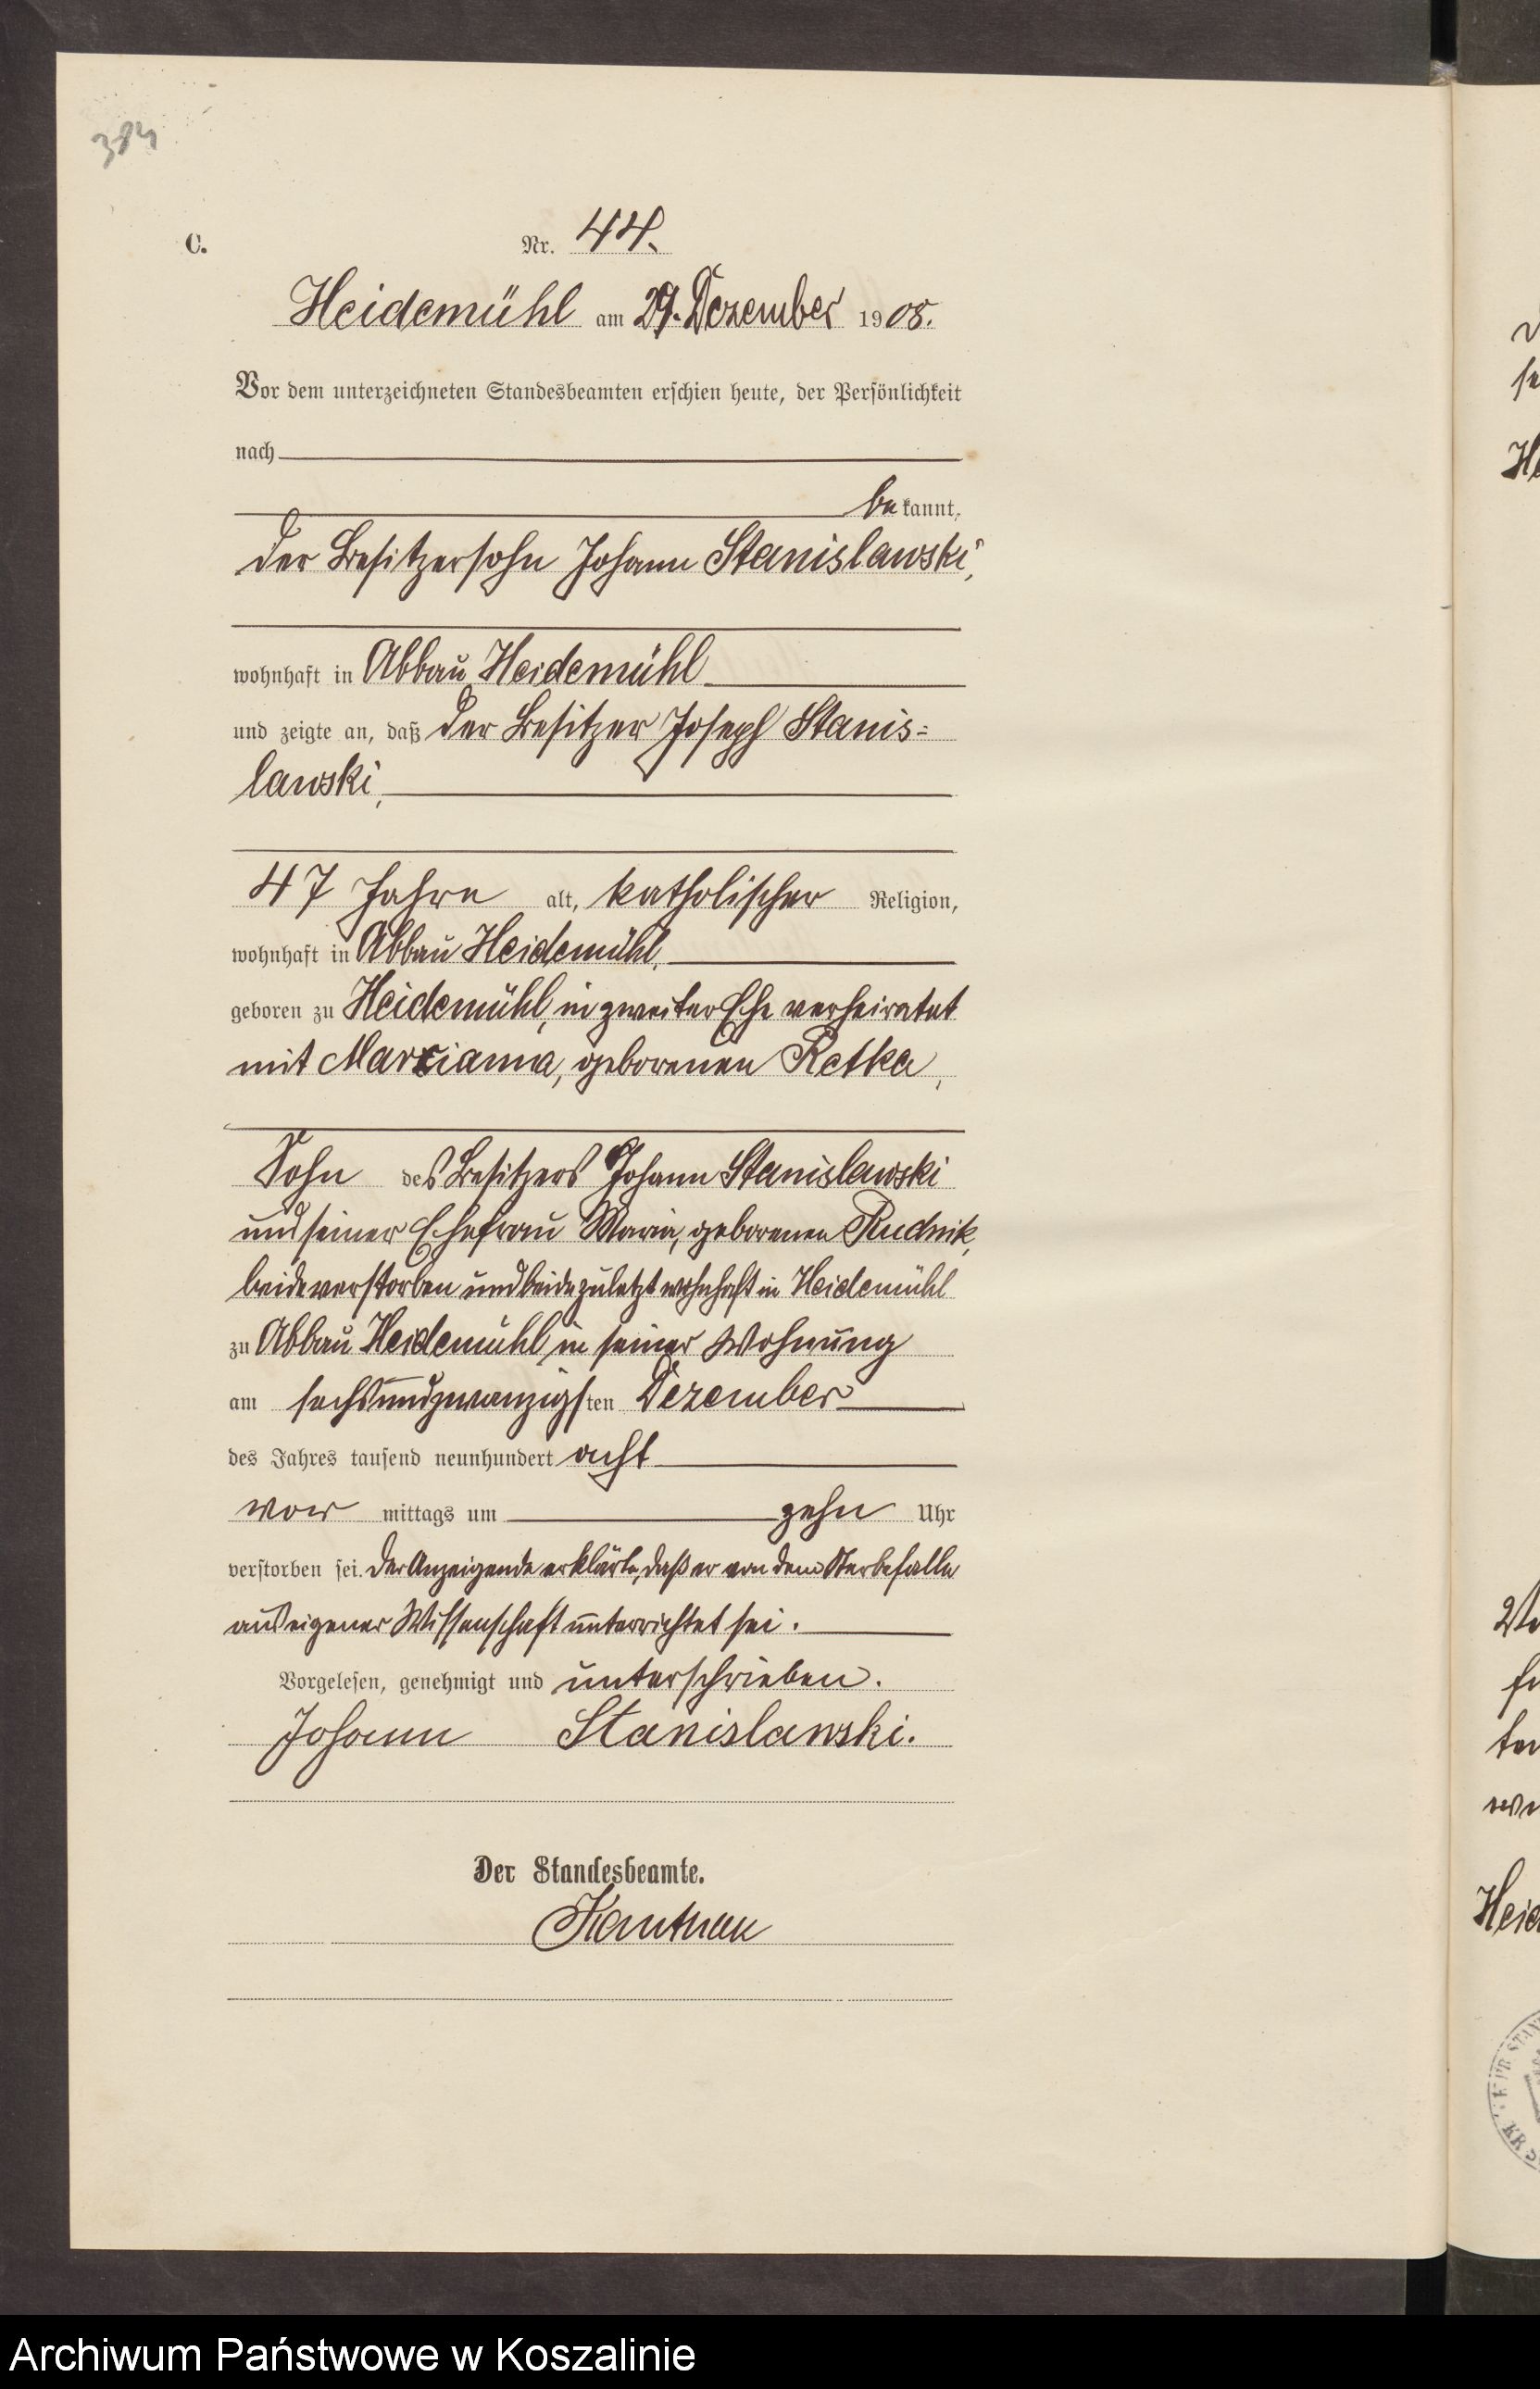 384
C.
Nr. 44.
Heidemühl am 29. Dezember 1908.
Vor dem unterzeichneten Standesbeamten erschien heute, der Persönlichkeit
nach
bekannt,
der Besitzersohn Johann Stanislawski,
wohnhaft in Abbau Heidemühl
und zeigte an, daß der Besitzer Joseph Stanis=
lawski,
47 Jahre alt, katholischer Religion,
wohnhaft in Abbau Heidemühl,
geboren zu Heidemühl, in zweiter Ehe verheiratet
mit Marcianna, geborenen Retka,
Sohn des Besitzers Johann Stanislawski
und seiner Ehefrau Maria, geborenen Rudnik,
beide verstorben und beide zuletzt wohnhaft in Heidemühl
zu Abbau Heidemühl in seiner Wohnung
am sechsundzwanzigsten Dezember
des Jahres tausend neunhundert acht
vor mittags um zehn Uhr
verstorben sei. Der Anzeigende erklärte, daß er von dem Sterbefalle
aus eigener Wissenschaft unterrichtet sei.
Vorgelesen, genehmigt und unterschrieben.
Johann Stanislawski.
Der Standesbeamte.
Archiwum Państwowe w Koszalinie